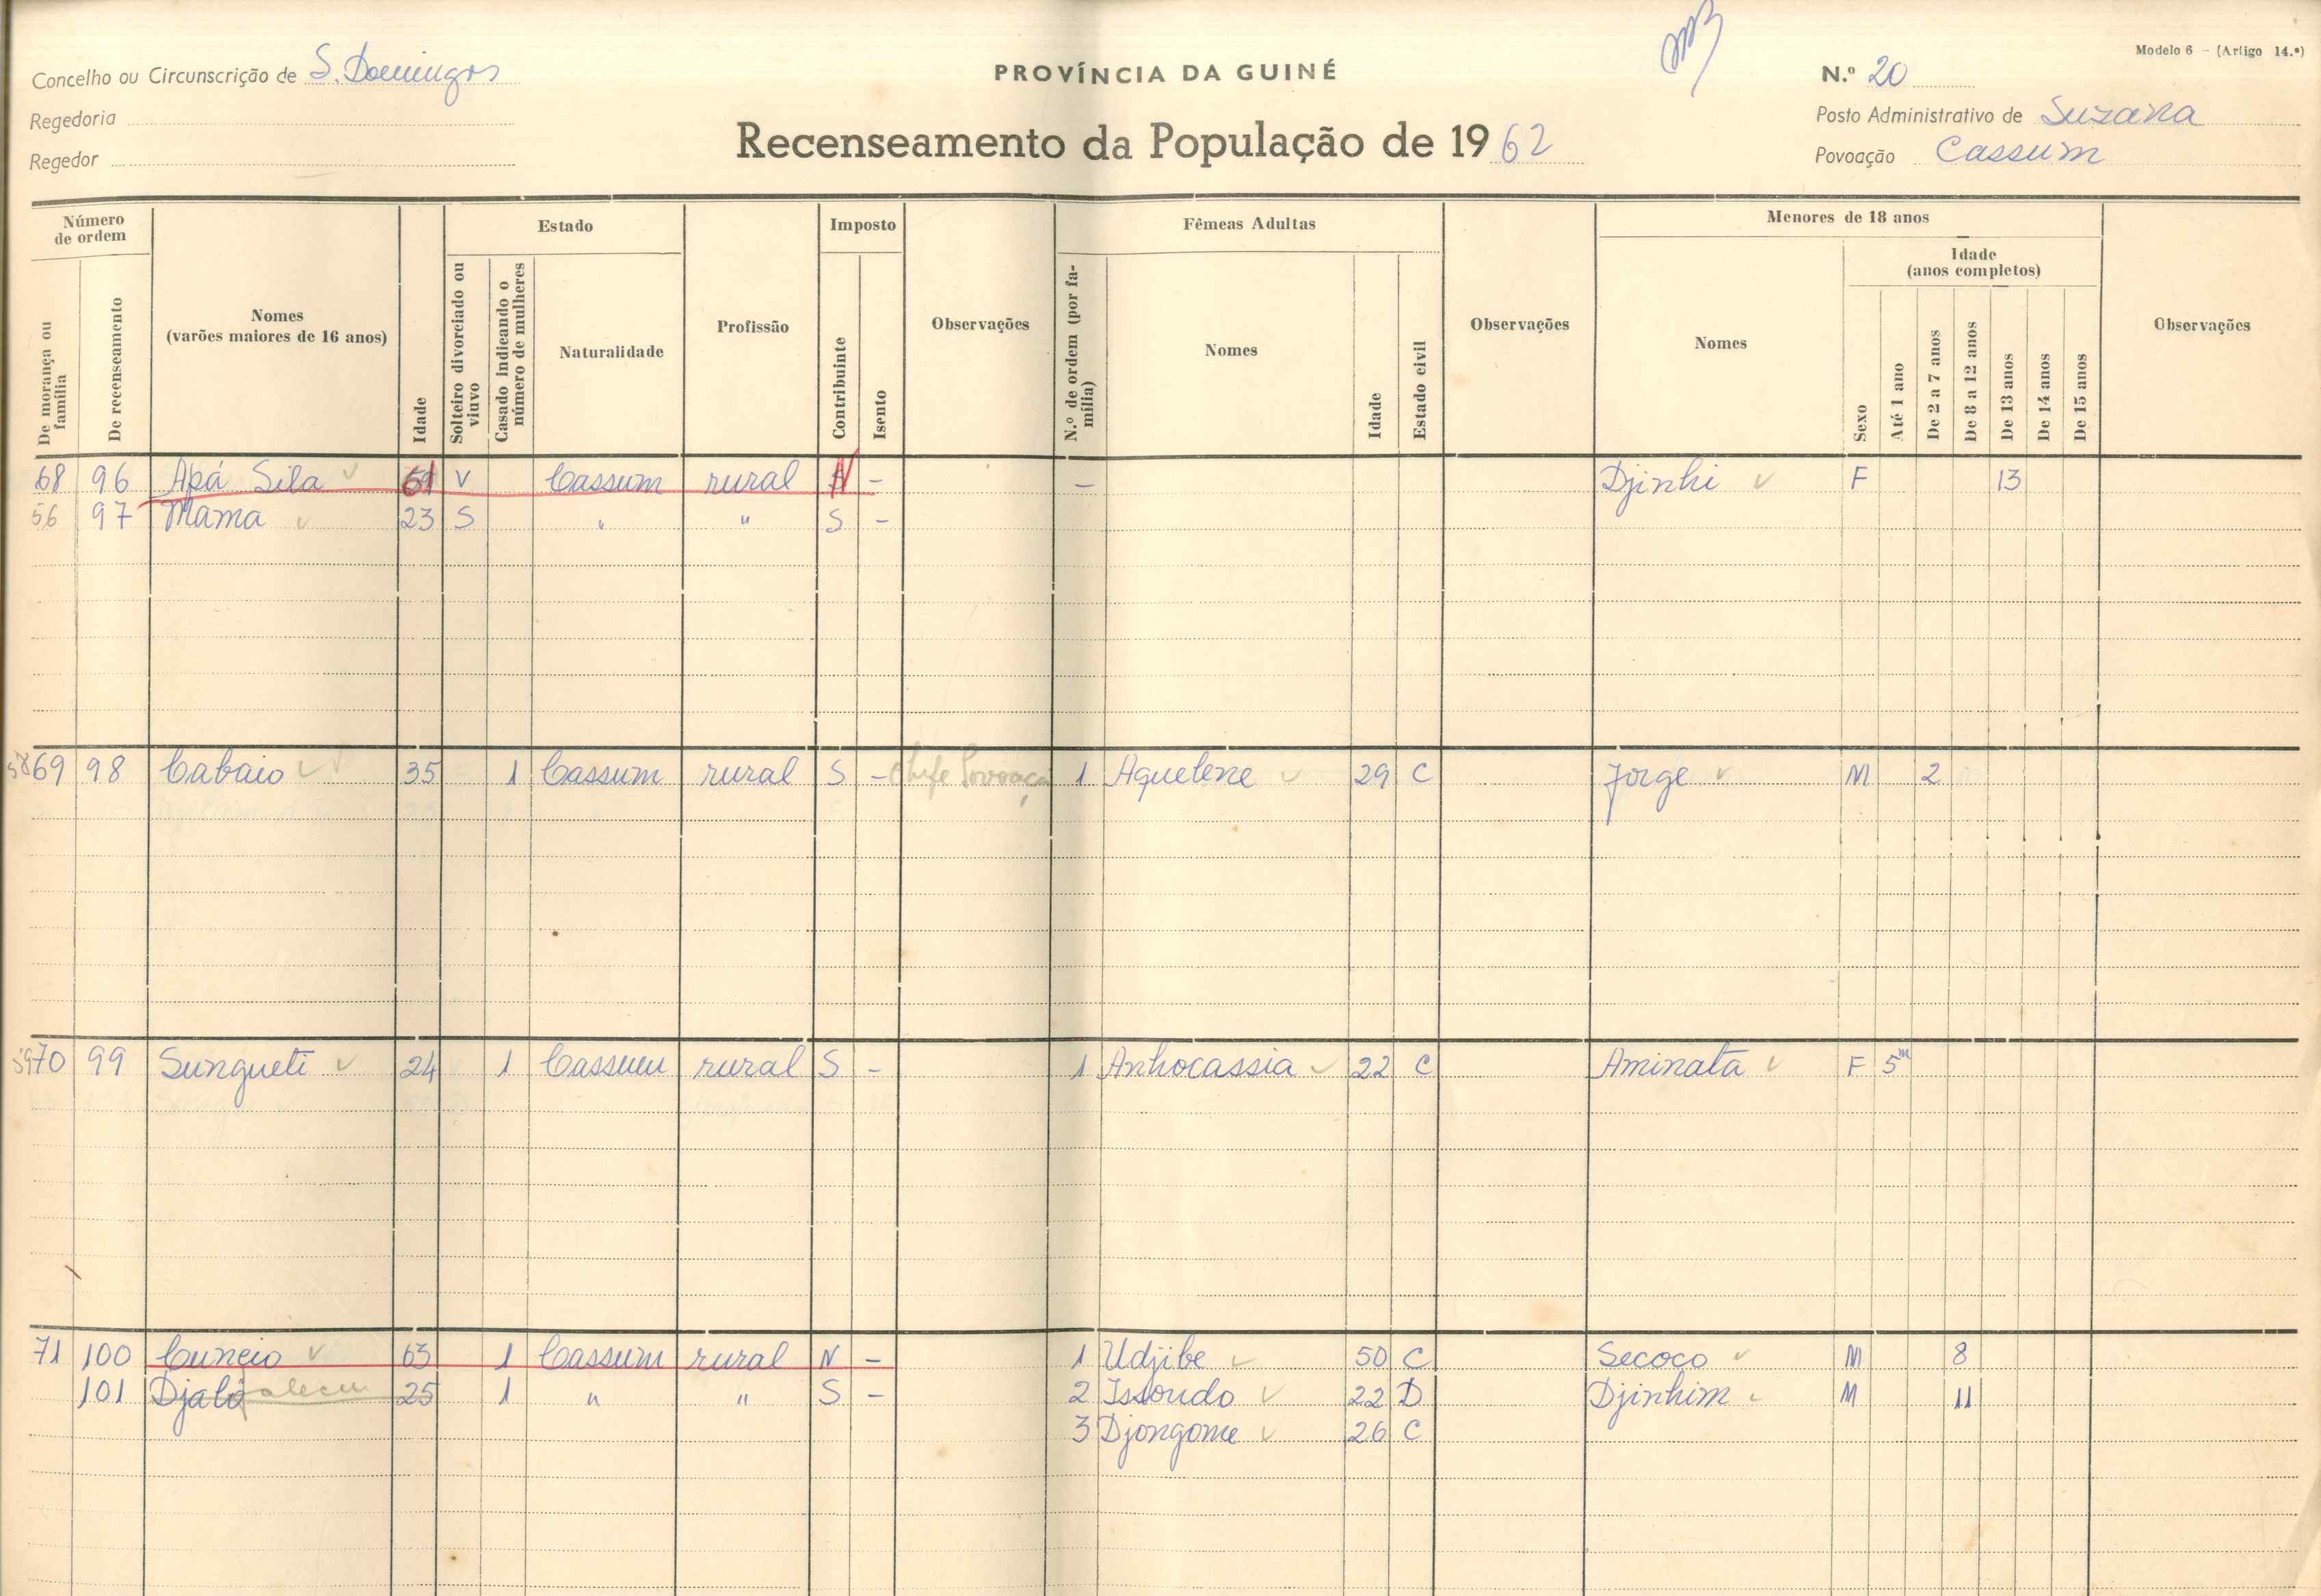 Modelo 6 - (Artigo 14.º)
Concelho ou Circunscrição de S. Domingos
PROVÍNCIA DA GUINÉ
N.º 20
Regedoria
Posto Administrativo de Suzana
Recenseamento da População de 1962
Regedor
Povoação Cassum
Número de ordem
Estado
Imposto
Fêmeas Adultas
Menores de 18 anos
Idade (anos completos)
De morança ou família
De recenseamento
Nomes (varões maiores de 16 anos)
Idade
Solteiro divorciado ou viuvo
Casado indicando o número de mulheres
Naturalidade
Profissão
Contribuinte
Isento
Observações
N.º de ordem (por família)
Nomes
Idade
Estado civil
Observações
Nomes
Sexo
Até 1 ano
De 2 a 7 anos
De 8 a 12 anos
De 13 anos
De 14 anos
De 15 anos
Observações
68 96 Apá Sila V Cassum rural N - - Djinhi F 13
56 97 Mama 23 S " " S -
58 69 98 Cabaio 35 1 Cassum rural S - Chefe Povoação 1 Aquelene 29 C Jorge M 2
59 70 99 Sungueti 24 1 Cassum rural S - 1 Anhocassia 22 C Aminata F 5m
71 100 Cuncio 63 1 Cassum rural N - 1 Udjibe 50 C Secoco M 8
101 Djaló 25 1 " " S - 2 Issondo 22 D Djinhim M 11
3 Djongome 26 C